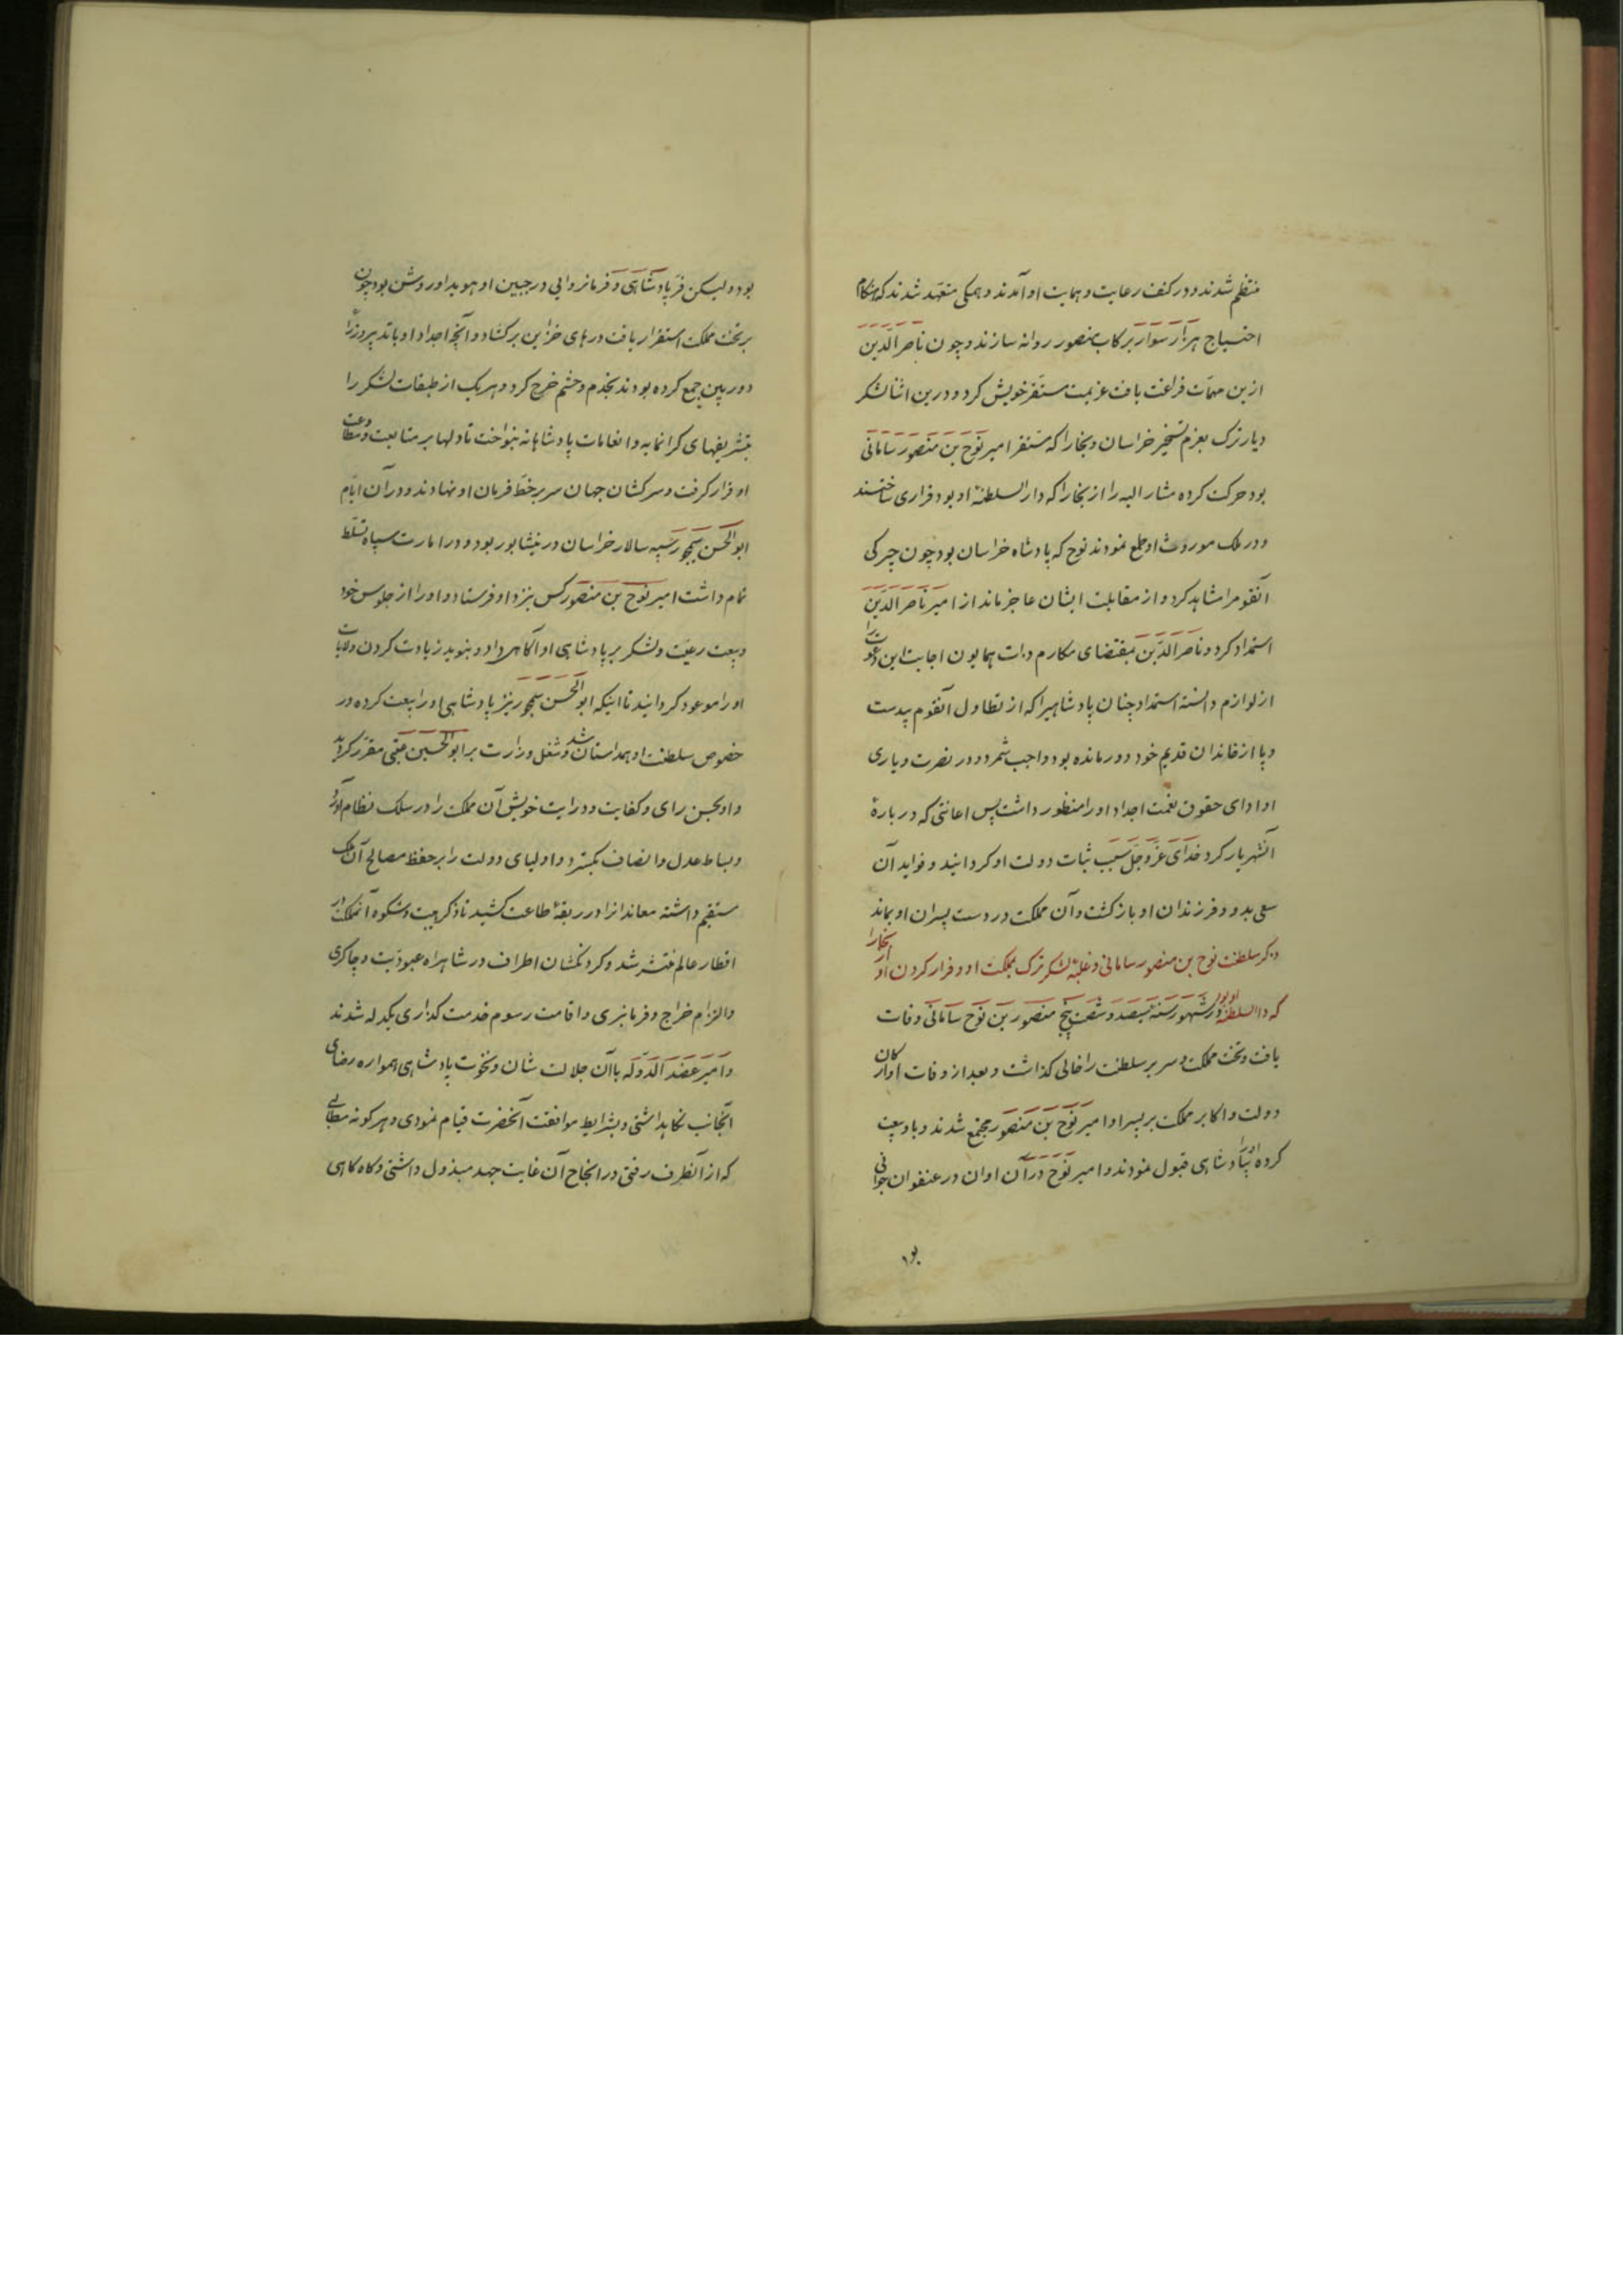 منتظم شدند و در کنف رعایت و حمایت او آمدند و همکی متعهد شدند که هنکام
احتیاج هزار سوار برکاب منصور روانه سازند و چون ناصر الدین
ازین مهمات فراغت یافت عزیمت مستقر خویش کرد و درین اثنا لشکر
دیار ترک بعزم تسخیر خراسان و بخارا که مستقر امیر نوح بن منصور سامانی
بود حرکت کرده مشار الیه را از بخارا که دار السلطنهٔ او بود فراری ساختند
و در ملک موروث او طمع نمودند نوح که پادشاه خراسان بود چون چیرکی
آنقوم را مشاهد کرد و از مقابلت ایشان عاجز ماند از امیر ناصر الدین
استمداد کرد و ناصر الدین بمقتضای مکارم ذات همایون اجابت این دعوت را
از لوازم دانسته استمداد چنان پادشاهیرا که از تطاول آنقوم بیدست
و پا از خاندان قدیم خود دور مانده بود واجب شمرد و در نصرت و یاری
او ادای حقوق نعمت اجداد او را منظور داشت پس اعانتی که در بارهٔ
آنشهریار کرد خدای عز و جل سبب ثبات دولت او کردانید و فواید آن
سعی بدو و فرزندان او باز کشت و آن مملکت در دست پسران او بماند
ذکر سلطنت نوح بن منصور سامانی و غلبهٔ لشکر ترک بملکت او و فرار کردن او از بخارا
که دار السلطنهٔ او بود در شهور سنه سیصد و شصت و پنج منصور بن نوح سامانی وفات
یافت و تخت مملکت و سریر سلطنت را خالی کذاشت و بعد از وفات او ارکان
دولت و اکابر مملکت بر پسر او امیر نوح بن منصور مجتمع شدند و باو بیعت
کرده او را بپادشاهی قبول نمودند و امیر نوح در آن اوان در عنفوان جوانی
بود
بود و لیکن فر پادشاهی و فرمانروایی در جبین او هویدا و روشن بود چون
بر تخت مملکت استقرار یافت درهای خزاین برکشاد و آنچه اجداد او باتدبیر و زرا
دوربین جمع کرده بودند بخدم و حشم خرج کرد و هریک از طبقات لشکر را
بتشریفهای کرانمایه و انعامات پادشاهانه بنواخت تا دلها بر متابعت و مطاوعت
او قرار کرفت و سرکشان جهان سر بر خط فرمان او نهادند و در آن ایام
ابو الحسن سیمجور سپه سالار خراسان در نیشابور بود و در امارت سپاه تسلط
تمام داشت امیر نوح بن منصور کس نزد او فرستاد و او را از جلوس خود
و بیعت رعیت و لشکر بر پادشاهی او آکاهی داد و بنوید زیادت کردن ولایات
او را موعود کردانید تا اینکه ابو الحسن سیمجور نیز پادشاهی او را بیعت کرده در
خصوص سلطنت او همداستان شد و شغل وزارت بر ابو الحسین عتبی مقرر کردید
و او بحسن رای و کفایت و درایت خویش آن مملکت را در سلک نظام آورد
و بساط عدل و انصاف بکسترد و اولیای دولت را بر حفظ مصالح آن ملک
مستقیم داشته معاندانرا در ربقهٔ طاعت کشید تا ذکر هیبت و شکوه آنمملکت در
اقطار عالم منتشر شد و کردنکشان اطراف در شاهراه عبودیت و چاکری
و الزام خراج و فرمانبری و اقامت رسوم خدمت کذاری یکدله شدند
و امیر عضد الدوله باآن جلالت شان و نخوت پادشاهی همواره رضای
آنجانب نکاهداشتی و بشرایط موافقت آنحضرت قیام نمودی و هر کونه مطالبی
که از آنطرف رفتی در انجاح آن غایت جهد مبذول داشتی و کاه کاهی